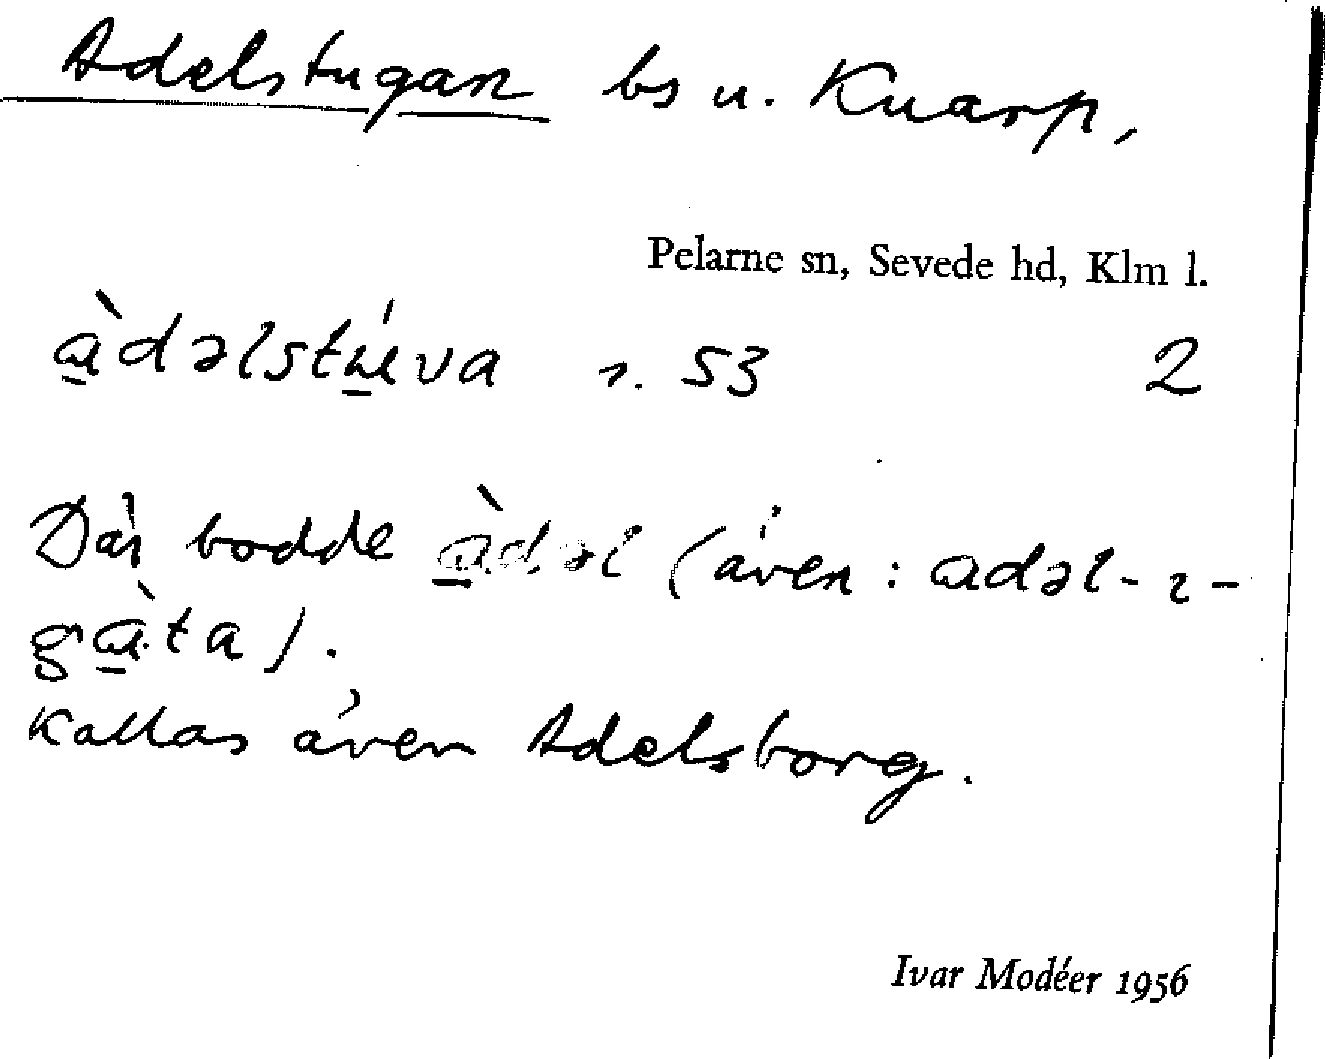 Adelstugan bs u. Knarp,
Pelarne sn, Sevede hd, Klm l.
àdəlstúva r. 53 2
Där bodde àdəl (även: adəl- ı -
gàta).
Kallas även Adelsborg.
Ivar Modéer 1956